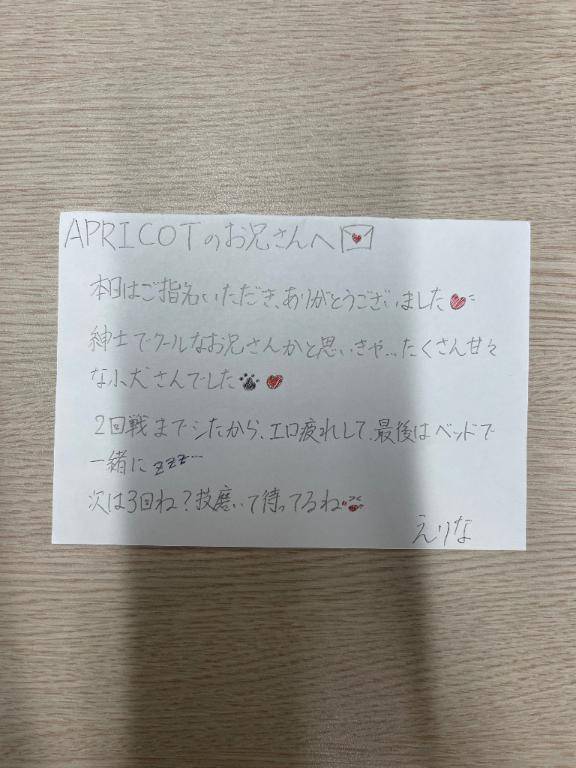 APRICOTのお兄さんへ
本日はご指名いただき、ありがとうございました
紳士でクールなお兄さんかと思いきや...たくさん甘々
な小犬さんでした
2回戦までシたから、エロ疲れして、最後はベッドで
一緒に zzz...
次は3回ね?技磨いて待ってるね
えりな